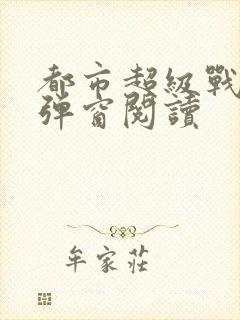 都市超級戰
彈窗閱讀
牟家莊